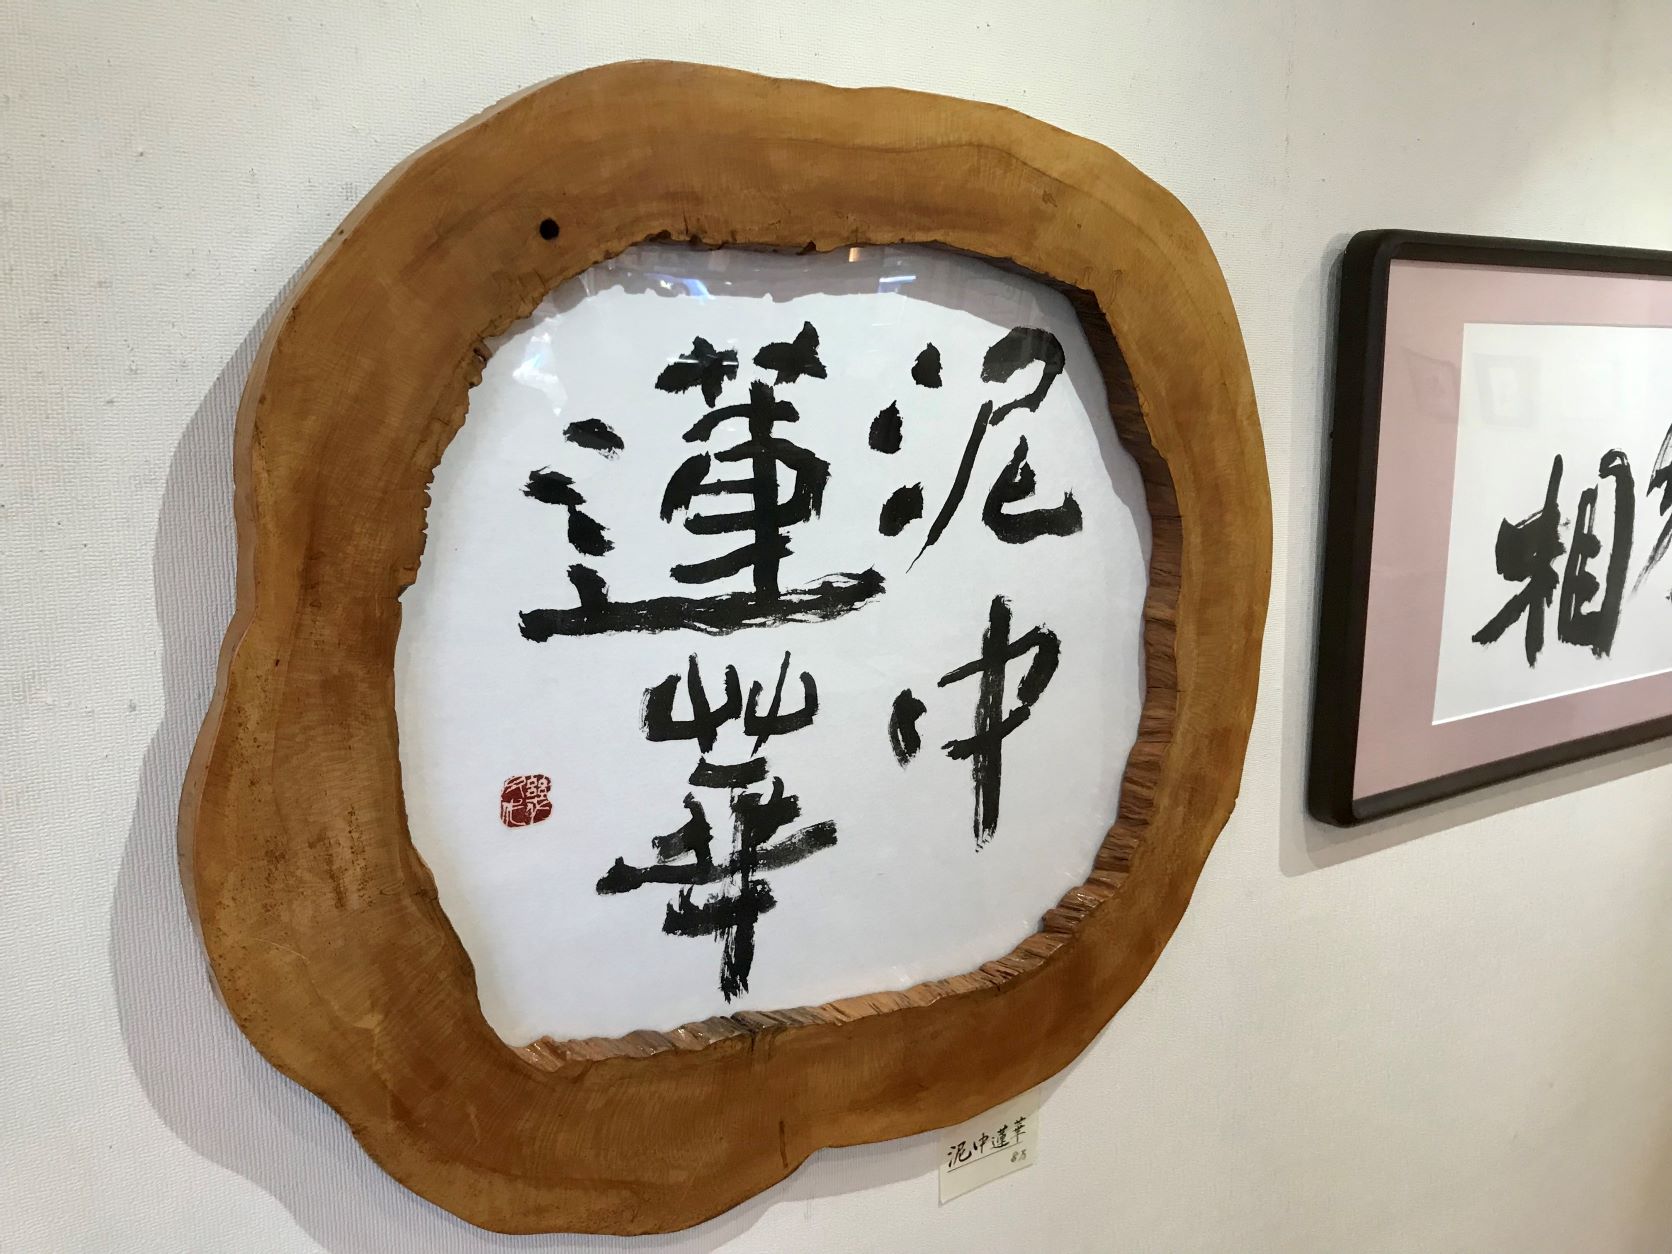 泥中
蓮華
泥中蓮華
相